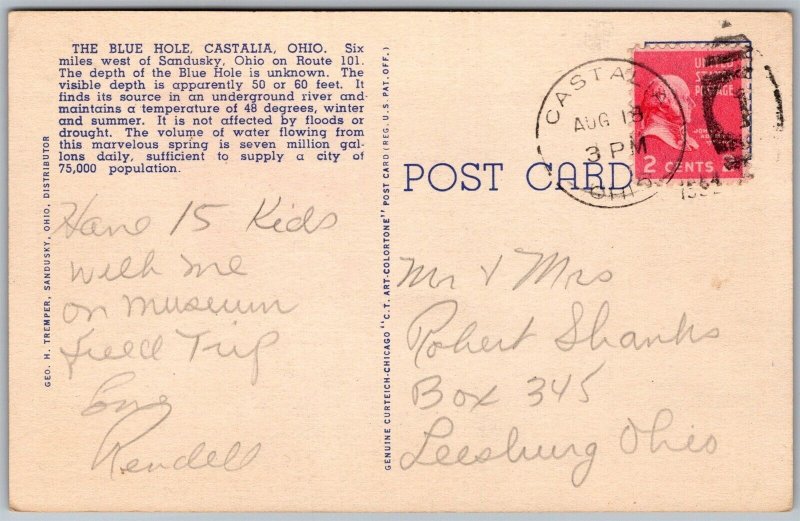 THE BLUE HOLE, CASTALIA, OHIO. Six
miles west of Sandusky, Ohio on Route 101.
The depth of the Blue Hole is unknown. The
visible depth is apparently 50 or 60 feet. It
finds its source in an underground river and
maintains a temperature of 48 degrees, winter
and summer. It is not affected by floods or
drought. The volume of water flowing from
this marvelous spring is seven million gal-
lons daily, sufficient to supply a city of
75,000 population.
GEO. H. TREMPER, SANDUSKY, OHIO, DISTRIBUTOR
Have 15 Kids
with me
on museum
Field Trip
Rendell
GENUINE CURTEICH-CHICAGO "C.T. ART-COLORTONE" POST CARD (REG. U.S. PAT. OFF.)
POST CARD
CASTALIA
AUG 18
3 PM
OHIO
UNITED
STATES
POSTAGE
JOHN
AD
2 CENTS 2
Mr & Mrs
Robert Shanks
Box 345
Leesburg Ohio